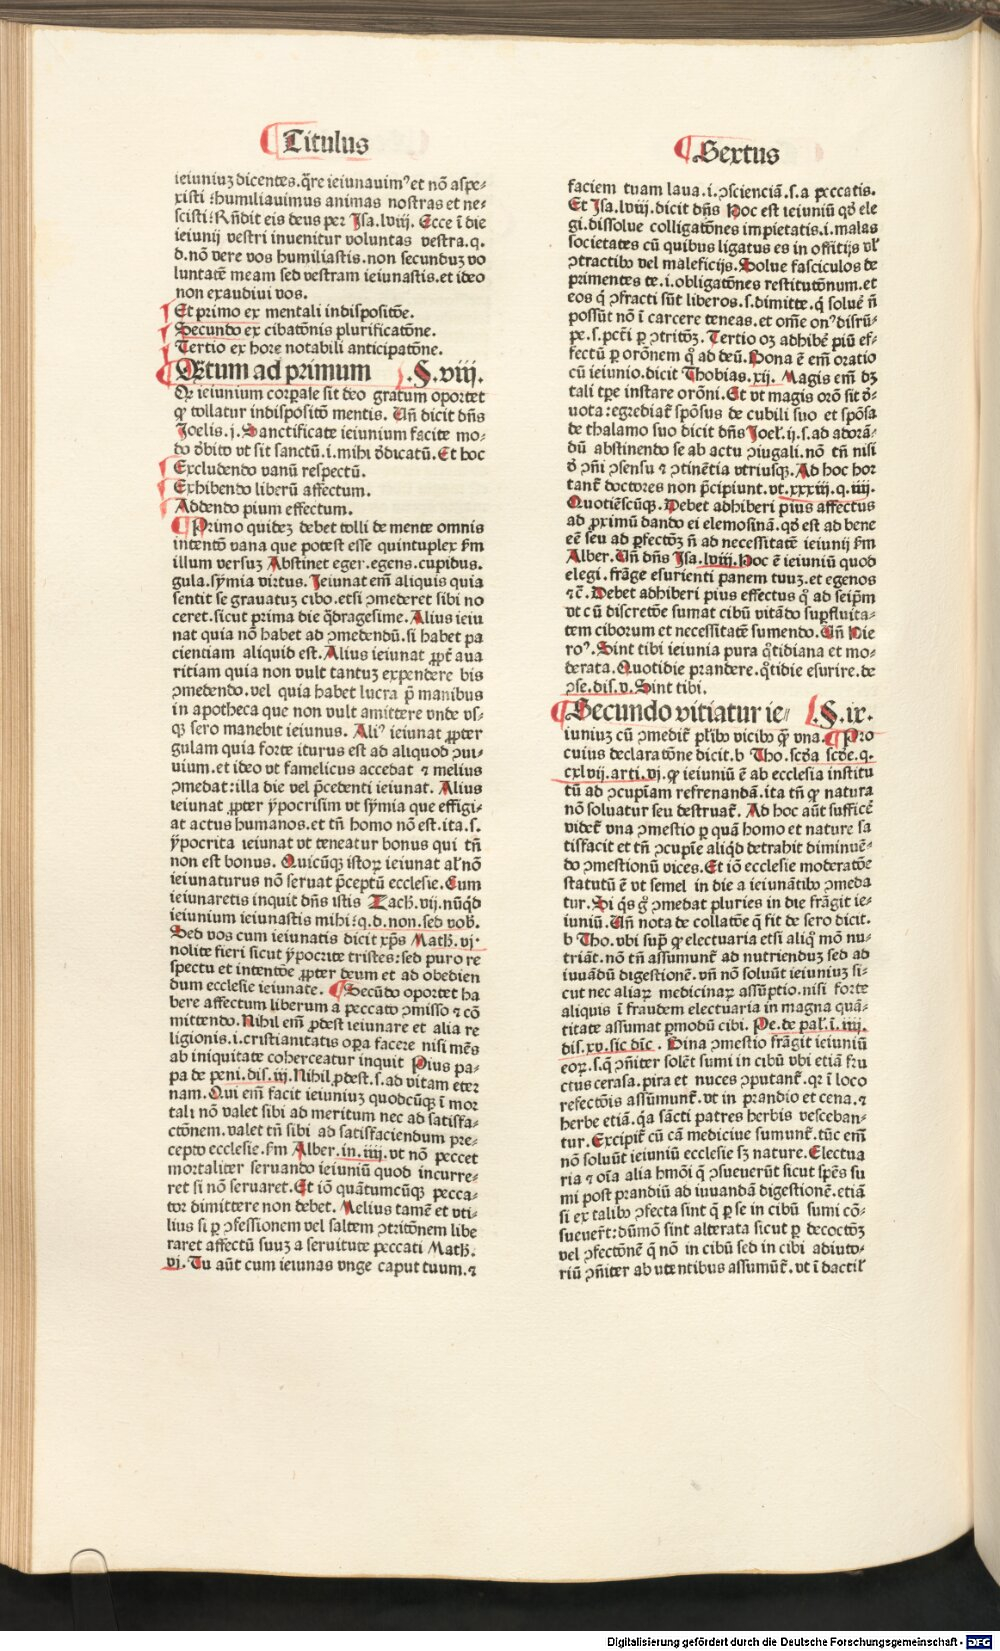 Titulus
ieiuniuꝫ dicentes.q̄re ieiunauimꝰ et nō aspe⸗
xisti : humiliauimus animas nostras et ne⸗
scisti? Rn̄dit eis deus per Isa.lviij. Ecce ī die
ieiunij vestri inuenitur voluntas vestra.q.
d.nō vere vos humiliastis.non secunduꝫ vo
luntatē meam sed vestram ieiunastis.et ideo
non exaudiui vos.
Et primo ex mentali indispositōe.
Secundo ex cibatōnis plurificatōne.
Tertio ex hore notabili anticipatōne.
Q̈tum ad primum .§.viij.
Qꝛ ieiunium corꝑale sit deo gratum oportet
ꝙ tollatur indispositō mentis. Un̄ dicit dn̄s
Joelis.j.Sanctificate ieiunium facite mo⸗
do debito vt sit sanctū.i.mihi dedicatū.Et hoc
Excludendo vanū respectū.
Exhibendo liberū affectum.
Addendo pium effectum.
Primo quideꝫ debet tolli de mente omnis
intentō vana que potest esse quintuplex s̄m
illum versuꝫ Abstinet eger.egens.cupidus.
gula.symia virtus. Jeiunat em̄ aliquis quia
sentit se grauatuꝫ cibo.etsi ꝯmederet sibi no
ceret.sicut prima die q̄dragesime.Alius ieiu
nat quia nō habet ad ꝯmedendū.si habet pa
cientiam aliquid est.Alius ieiunat ꝓpt̄ aua
ritiam quia non vult tantuꝫ expendere bis
ꝯmedendo.vel quia habet lucra p̄ manibus
in apotheca que non vult amittere vnde vs⸗
qꝫ sero manebit ieiunus. Aliꝰ ieiunat ꝓpter
gulam quia forte iturus est ad aliquod ꝯui⸗
uium.et ideo vt famelicus accedat ⁊ melius
ꝯmedat:illa die vel p̄cedenti ieiunat. Alius
ieiunat ꝓpter ypocrisim vt symia que effigi⸗
at actus humanos.et tn̄ homo nō est.ita.s.
ypocrita ieiunat vt teneatur bonus qui tn̄
non est bonus. Quicūqꝫ istoꝝ ieiunat al̄ nō
ieiunaturus nō seruat p̄ceptū ecclesie.Cum
ieiunaretis inquit dn̄s istis Zach̄.vij.nūqd
ieiunium ieiunastis mihi?q.d.non.sed vob̄.
Sed vos cum ieiunatis dicit xp̄s Math̄.vj.
nolite fieri sicut ypocrite tristes:sed puro re
spectu et intentōe ꝓpter deum et ad obedien
dum ecclesie ieiunate. Secūdo oportet ha
bere affectum liberum a peccato ꝯmisso ⁊ cō
mittendo.Nihil em̄ ꝓdest ieiunare et alia re
ligionis.i.cristianitatis oꝑa facere nisi mēs
ab iniquitate coherceatur inquit Pius pa⸗
pa de peni.dis.iij.Nihil ꝓdest.s.ad vitam eter
nam.Qui em̄ facit ieiuniuꝫ quodcūqꝫ ī mor
tali nō valet sibi ad meritum nec ad satisfa⸗
ctōnem.valet tn̄ sibi ad satisfaciendum pre⸗
cepto ecclesie.s̄m Alber.in.iiij.vt nō peccet
mortaliter seruando ieiuniū quod incurre⸗
ret si nō seruaret.Et iō quātumcūqꝫ pecca⸗
tor dimittere non debet. Melius tamē et vti⸗
lius si ꝑ ꝯfessionem vel saltem ꝯtritōnem libe
raret affectū suuꝫ a seruitute peccati Math̄.
vj. Tu aūt cum ieiunas vnge caput tuum.⁊
Sextus
faciem tuam laua.i.ꝯscienciā.s.a peccatis.
Et Isa.lviij.dicit dn̄s Hoc est ieiuniū qd̄ ele
gi.dissolue colligatōnes impietatis.i.malas
societates cū quibus ligatus es in officijs vl̄
ꝯtractibꝰ vel maleficijs.Solue fasciculos de
primentes te.i.obligatōnes restitutōnum.et
eos q̄ ꝯfracti sūt liberos.s.dimitte.q̄ soluē n̄
possūt nō ī carcere teneas.et om̄e onꝰ disrū⸗
pe.s.pctī ꝑ ꝯtritōꝫ. Tertio oꝫ adhibē piū ef⸗
fectū ꝑ orōnem q̄ ad deū.Bona ē em̄ oratio
cū ieiunio.dicit Thobias.xij. Magis em̄ dꝫ
tali tꝑe instare orōni.Et vt magis orō sit de⸗
uota:egrediat̄ spōsus de cubili suo et spōsa
de thalamo suo dicit dn̄s Joel̄.ij.s.ad adorā⸗
dū abstinendo se ab actu ꝯiugali.nō tn̄ nisi
de ꝯn̄i ꝯsensu ⁊ ꝯtinētia vtriusqꝫ.Ad hoc hor
tant̄ doctores non p̄cipiunt.vt.xxxiij.q.iiij.
Quotiēscūqꝫ.Debet adhiberi pius affectus
ad ꝓximū dando ei elemosinā.qd̄ est ad bene
eē seu ad ꝑfectōꝫ n̄ ad necessitatē ieiunij s̄m
Alber.Un̄ dn̄s Isa.lviij.Hoc ē ieiuniū quod
elegi.frāge esurienti panem tuuꝫ.et egenos
⁊c̄.Debet adhiberi pius effectus q̄ ad seip̄m
vt cū discretōe sumat cibū vitādo suꝑfluita⸗
tem ciborum et necessitatē sumendo.Un̄ Hie
roꝰ.Sint tibi ieiunia pura q̄tidiana et mo⸗
derata.Quotidie prandere.q̄tidie esurire.de
ꝯse.dis.v.Sint tibi.
Secundo vitiatur ie⸗ .§.ix.
iuniuꝫ cū ꝯmedit̄ pl̄ibꝰ vicibꝰ qꝫ vna. Pro
cuius declaratōne dicit.b Tho.scd̄a scd̄e.q.
cxlvij.arti.vj.ꝙ ieiuniū ē ab ecclesia institu
tū ad ꝯcupīam refrenandā.ita tn̄ ꝙ natura
nō soluatur seu destruat̄. Ad hoc aūt sufficē
videt̄ vna ꝯmestio ꝑ quā homo et nature sa
tisfacit et tn̄ ꝯcupīe aliqd̄ detrahit diminuē⸗
do ꝯmestionū vices.Et iō ecclesie moderatōe
statutū ē vt semel in die a ieiunātibꝰ ꝯmeda
tur.Si q̄s g̊ ꝯmedat pluries in die frāgit ie⸗
iuniū.Un̄ nota de collatōe q̄ fit de sero dicit.
b Tho.vbi supͣ ꝙ electuaria etsi aliqͦ mō nu⸗
triāt.nō tn̄ assumunt̄ ad nutrienduꝫ sed ad
iuuādū digestionē.vn̄ nō soluūt ieiuniuꝫ si⸗
cut nec aliaꝝ medicinaꝝ assūptio.nisi forte
aliquis ī fraudem electuaria in magna quā⸗
titate assumat ꝑ modū cibi. Pe.de pal̄.ī.iiij.
dis.xv.sic dic̄. Bina ꝯmestio frāgit ieiuniū
eoꝝ.s.q̄ ꝯn̄iter solēt sumi in cibū vbi etiā fru
ctus cerasa.pira et nuces ꝯputant̄.qꝛ ī loco
refectōis assūmunt̄.vt in prandio et cena.⁊
herbe etiā.qꝛ sācti patres herbis vesceban⸗
tur.Excipit̄ cū cā medicine sumunt̄.tūc em̄
nō soluūt ieiuniū ecclesie sꝫ nature.Electua
ria ⁊ oīa alia hmōi q̄ ꝯsueuerūt sicut spēs su
mi post prandiū ad iuuandā digestionē.etiā
si ex talibꝰ ꝯfecta sint q̄ ꝑ se in cibū sumi cō⸗
sueuer̄t:dūmō sint alterata sicut ꝑ decoctōꝫ
vel ꝯfectōnē q̄ nō in cibū sed in cibi adiuto⸗
riū ꝯn̄iter ab vtentibus assumūt̄.vt ī dactil̄
Digitalisierung gefördert durch die Deutsche Forschungsgemeinschaft - DFG